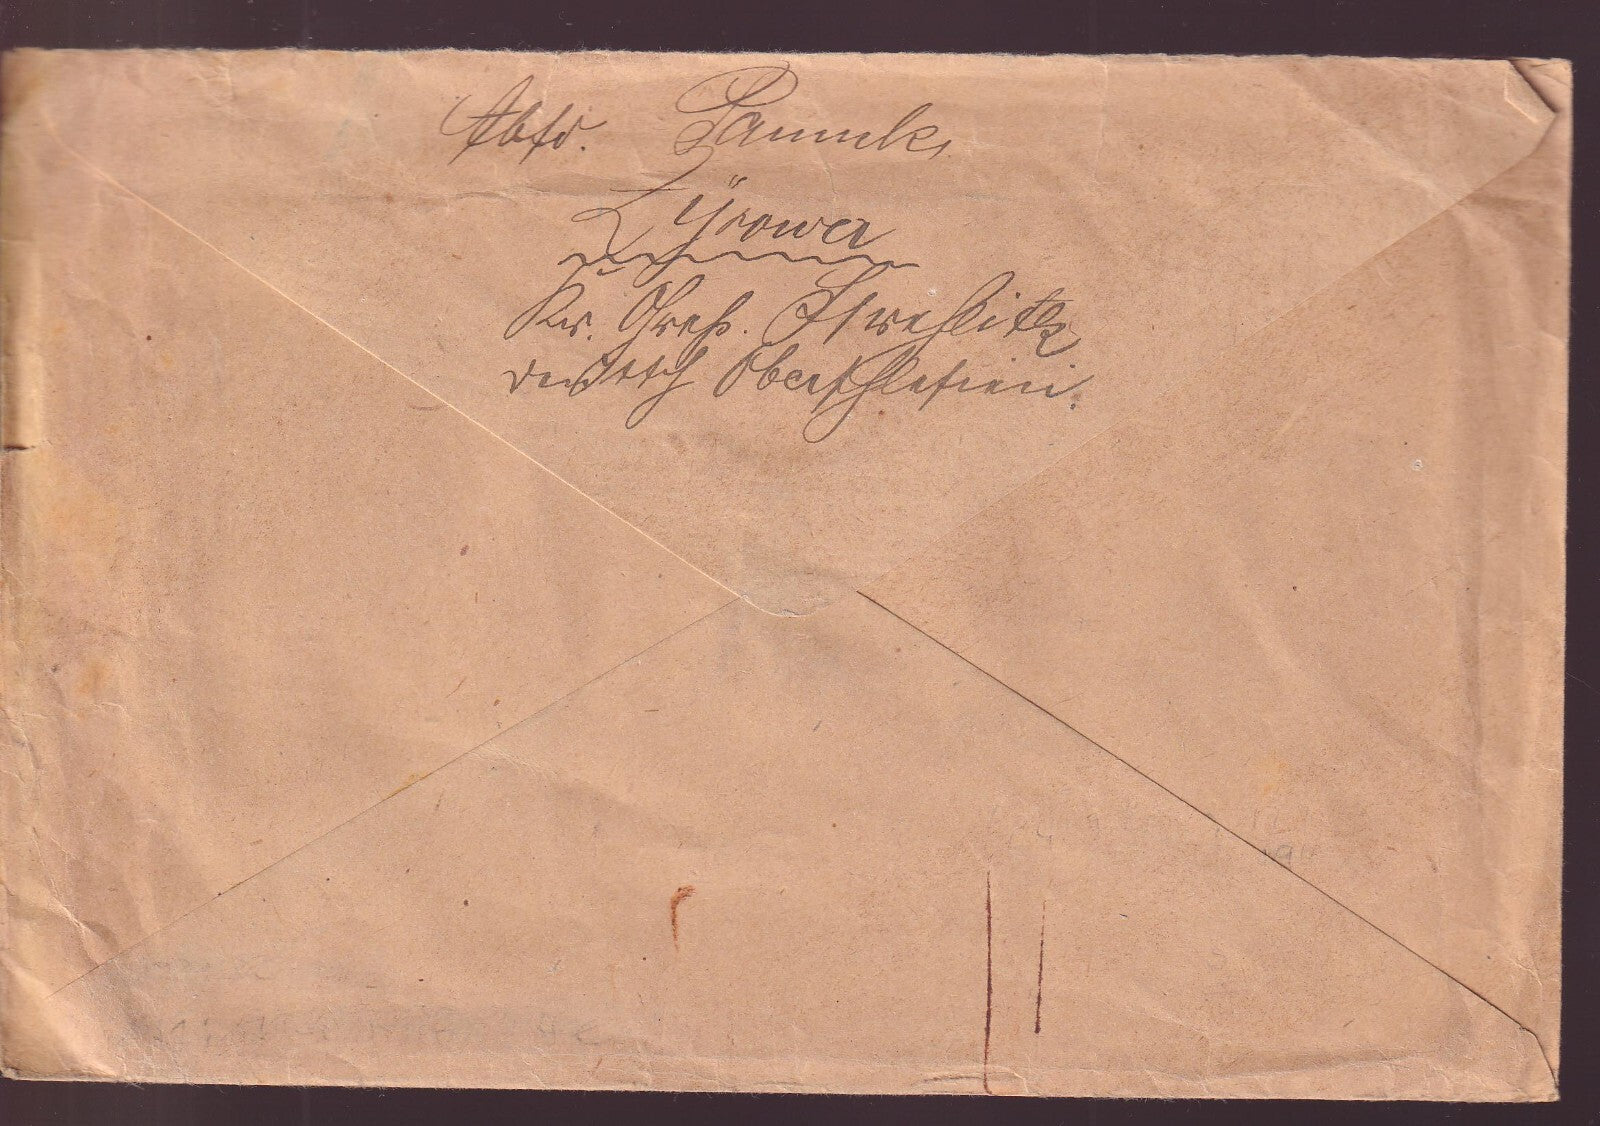 Absd.
Zÿrowa
Kr. Groß. Strehlitz
deutsch Oberschlesien.